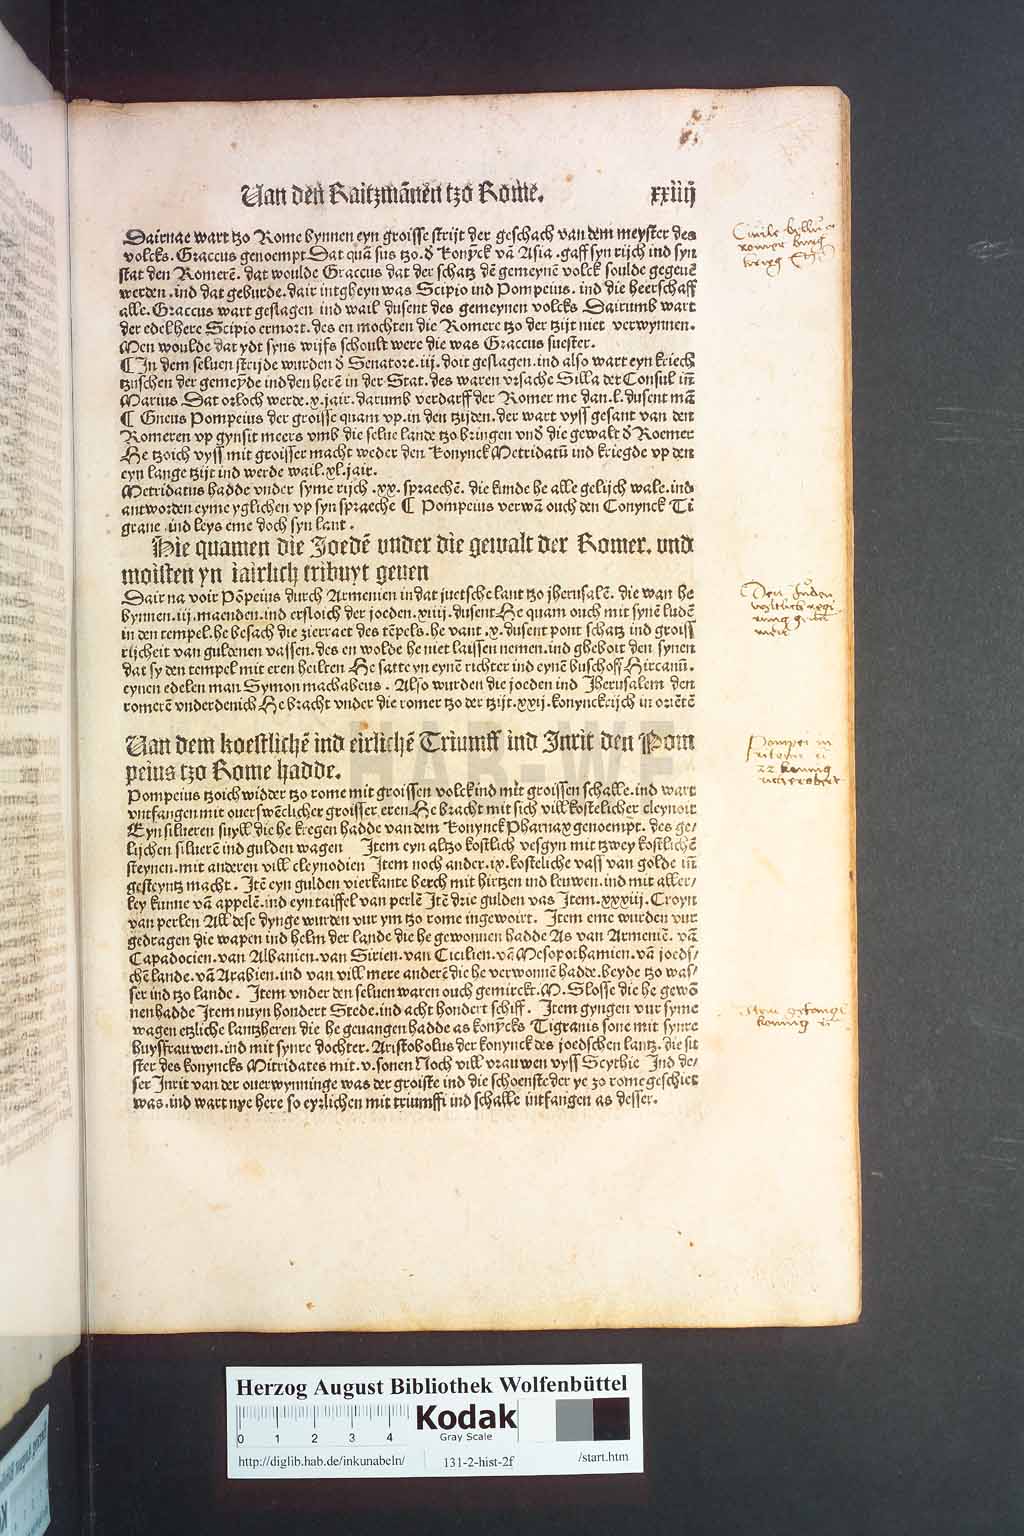 Van den Raitzmānen tzo Rome. xxiiij
Dairnae wart tzo Rome bynnen eyn groisse strijt der geschach van dem meyster des
volcks. Graccus genoempt Dat quā sus tzo. d̕ Konȳck vā Asia .gaff syn rijch ind syn
stat den Romerē. dat woulde Graccus dat der schatz dē gemeynē volck soulde gegeuē
werden .ind dat geburde. dair intgheyn was Scipio ind Pompeius. ind die heerschaff
alle. Graccus wart geslagen ind wail dusent des gemeynen volcks Dairumb wart
der edel here Scipio ermort. des en mochten die Romere tzo der tzijt niet verwynnen.
Men woulde dat ydt syns wijfs schoult were die was Graccus suester.
¶ In dem seluen strijde wurden d̕ Senatore .iij. doit geslagen .ind also wart eyn kriech
tzuschen der gemeȳde ind den herē in der Stat. des waren vrsache Silla der Consul iñ
Marius. Dat orloch werde .x. jair. darumb verdarff der Romer me dan .l. dusent mā
¶ Gneus Pompeius der groisse quam vp. in den tzijden. der wart vyss gesant van den
Romeren vp gynsit meers vmb die selue lande tzo bringen vnd̕ die gewalt d̕ Roemer
He tzoich vyss mit groisser macht weder den Konynck Metridatū ind kriegde vp den
eyn lange tzijt ind werde wail .xl. jair.
Metridatus hadde vnder syme rijch .xx. spraechē. die kunde he alle gelijch wale .ind
antworden eyme yglichen vp syn spraeche ¶ Pompeius verwā ouch den Conynck Ti
grane .ind leys eme doch syn lant .
Hie quamen die Joedē vnder die gewalt der Romer. vnd
moisten yn iairlich tribuyt geuen
Dair na voir Pōpeius durch Armenien in dat juetsche lant tzo jherusalē. die wan he
bynnen .iij. maenden. ind ersloich der joeden .xiiij. dusent He quam ouch mit synē ludē
in den tempel. he besach die zierraet des tēpels. he vant .x. dusent pont schatz ind groiss
rijcheit van guldenen vassen. des en wolde he niet laissen nemen. ind gheboit den synen
dat sy den tempel mit eren heilten He satte yn eynē richter ind eynē buschoff Hircanū.
eynen edelen man Symon machabeus . Also wurden die joeden ind Jherusalem den
romerē vnderdenich He bracht vnder die romer tzo der tzijt .xxij. konynckrijch in oriētē
Van dem koestlichē ind eirlichē Triumff ind Inrit den Pom
peius tzo Rome hadde.
Pompeius tzoich widder tzo rome mit groissen volck ind mit groissen schalle. ind wart
vntfangen mit ouerswēclicher groisser eren He bracht mit sich vill kostelicher cleynoit
Eyn silueren suyll die he kregen hadde van dem Konynck Pharnax genoempt. des ge/
lijchen siluerē ind gulden wagen Item eyn altzo kostlich vesgyn mit tzwey kostlichē
steynen. mit anderen vill cleynodien Item noch ander .ix. kosteliche vass van golde iñ
gesteyntz macht . Itē eyn gulden vierkante berch mit hirtzen ind leuwen. ind mit aller/
ley kunne vā appelē. ind eyn taiffel van perlē Itē drie gulden vas Item .xxxiij. Croyn
van perlen All dese dynge wurden vur ym tzo rome ingewoirt. Item eme wurden vur
gedragen die wapen ind helm der lande die he gewonnen hadde As van Armeniē. vā
Capadocien. van Albanien. van Sirien. van Cicilien. vā Mesopothamien. vā joeds/
chē lande. vā Arabien. ind van vill mere anderē die he verwonnē hadde. beyde tzo was/
ser ind tzo lande . Item vnder den seluen waren ouch gemirckt .M. Slosse die he gewō
nen hadde Item nuyn hondert Stede. ind acht hondert schiff . Item gyngen vur syme
wagen etzliche lantzheren die he geuangen hadde as konȳcks Tigranis sone mit synre
huysfrauwen. ind mit synre dochter. Aristobolus der konynck des joedschen lantz. die sū
ster des konyncks Mitridates mit .v. sonen Noch vill vrauwen vyss Scythie Ind de/
ser Inrit van der ouerwynninge was der groiste ind die schoenste der ye zo rome geschiet
was. ind wart nye here so eyrlichen mit triumffi ind schalle intfangen as desser.
Pompei
22 konnig
Herzog August Bibliothek Wolfenbüttel
0 1 2 3 4 Kodak
Gray Scale
http://diglib.hab.de/inkunabeln/ 131-2-hist-2f /start.htm
HAB-WF